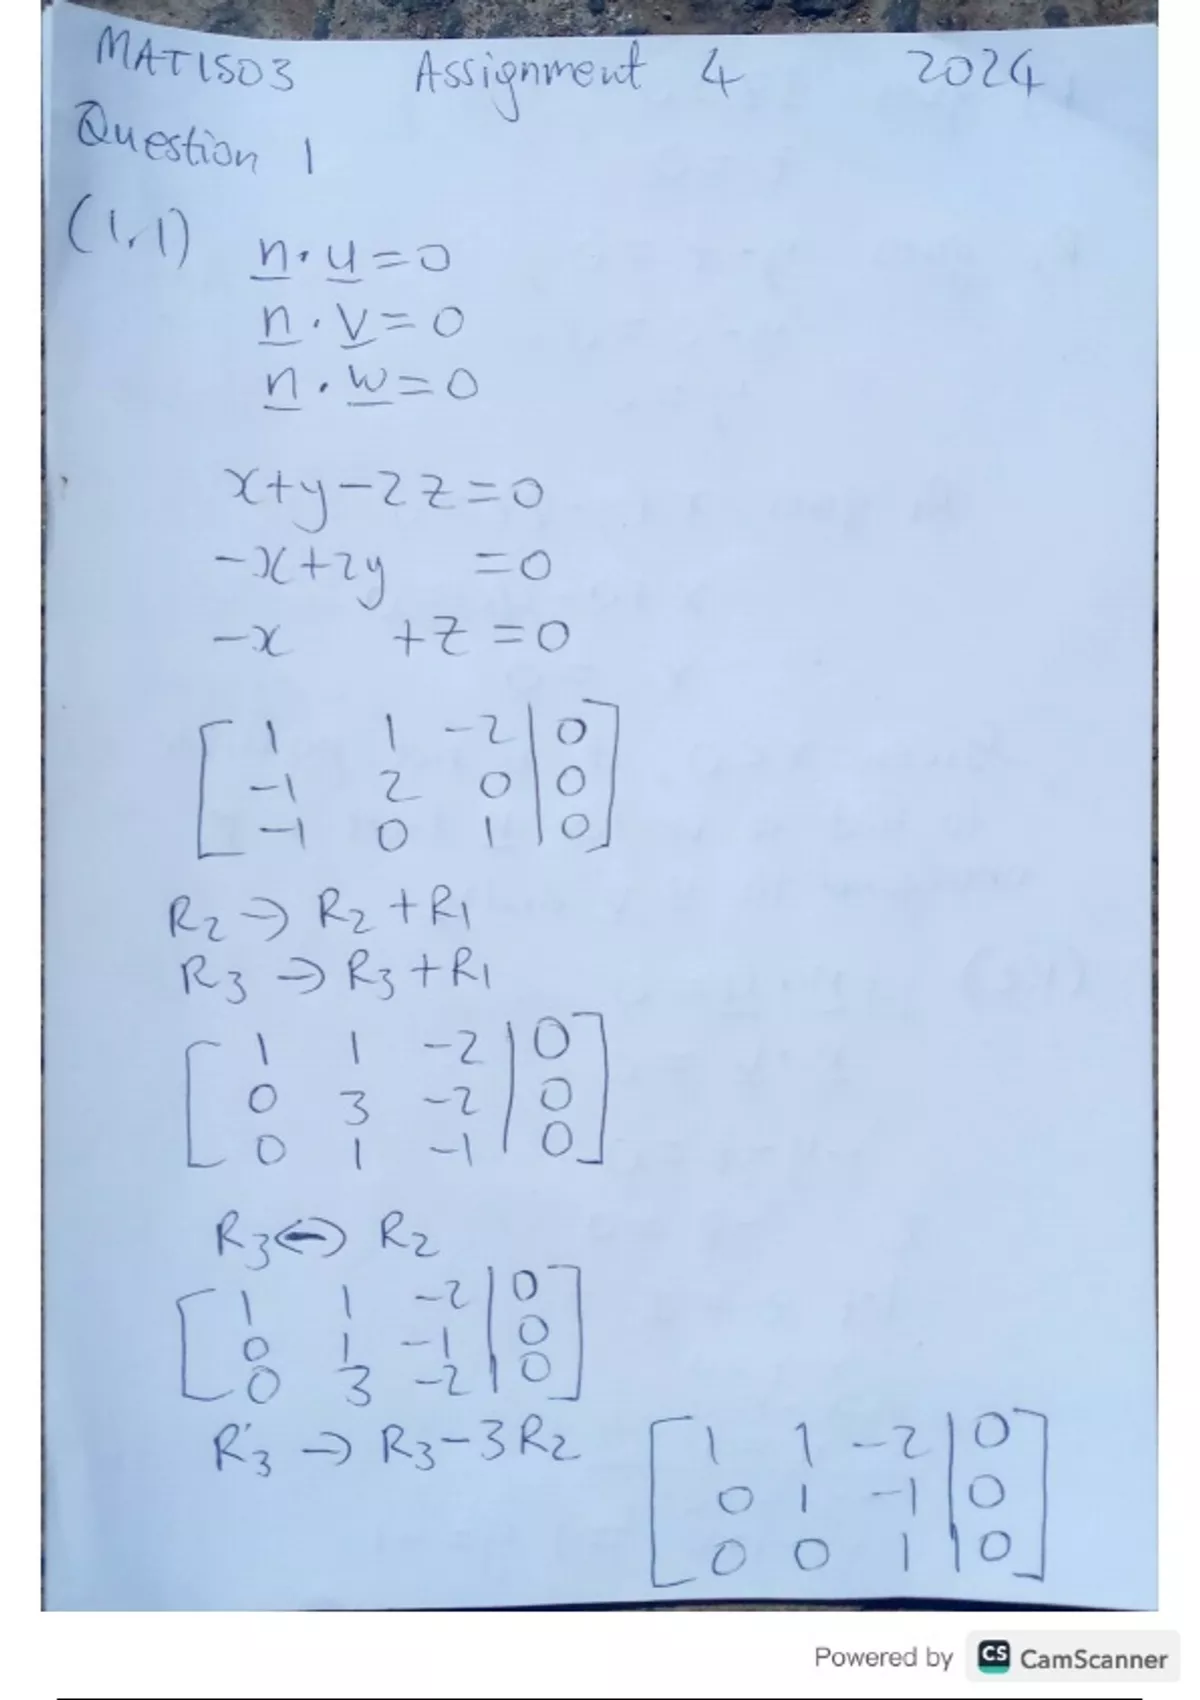 MAT1503 Assignment 4 2024
Question 1
(1.1)
n · u = 0
n · v = 0
n · w = 0
x+y-2z=0
-x+2y =0
-x +z=0
[ 1 1 -2 | 0 ]
[ -1 2 0 | 0 ]
[ -1 0 1 | 0 ]
R2 → R2 + R1
R3 → R3 + R1
[ 1 1 -2 | 0 ]
[ 0 3 -2 | 0 ]
[ 0 1 -1 | 0 ]
R3 ↔ R2
[ 1 1 -2 | 0 ]
[ 0 1 -1 | 0 ]
[ 0 3 -2 | 0 ]
R3 → R3 - 3R2
[ 1 1 -2 | 0 ]
[ 0 1 -1 | 0 ]
[ 0 0 1 | 0 ]
Powered by CS CamScanner